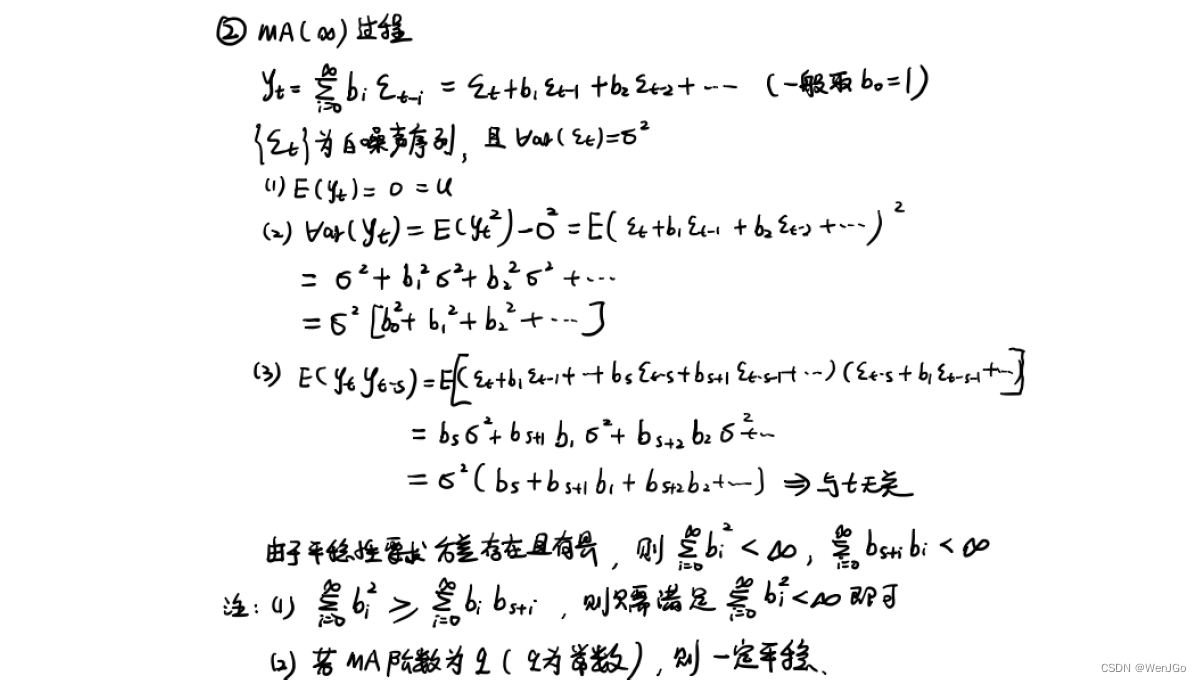 ② MA(∞)过程
y_t = ∑_{i=0}^{∞} b_i ε_{t-i} = ε_t + b_1 ε_{t-1} + b_2 ε_{t-2} + ··· (一般取 b_0 = 1)
{ε_t}为白噪声序列, 且 Var(ε_t) = σ²
(1) E(y_t) = 0 = u
(2) Var(y_t) = E(y_t²) - 0² = E(ε_t + b_1 ε_{t-1} + b_2 ε_{t-2} + ···)²
= σ² + b_1² σ² + b_2² σ² + ···
= σ² [b_0² + b_1² + b_2² + ···]
(3) E(y_t y_{t-s}) = E[(ε_t + b_1 ε_{t-1} + ·· + b_s ε_{t-s} + b_{s+1} ε_{t-s-1} + ···)(ε_{t-s} + b_1 ε_{t-s-1} + ···)]
= b_s σ² + b_{s+1} b_1 σ² + b_{s+2} b_2 σ² + ···
= σ² (b_s + b_{s+1} b_1 + b_{s+2} b_2 + ···) ⇒ 与t无关
由于平稳性要求方差存在且有界, 则 ∑_{i=0}^{∞} b_i² < ∞, ∑_{i=0}^{∞} b_{s+i} b_i < ∞
注: (1) ∑_{i=0}^{∞} b_i² ≥ ∑_{i=0}^{∞} b_i b_{s+i}, 则只需满足 ∑_{i=0}^{∞} b_i² < ∞ 即可
(2) 若 MA 阶数为 q (q为常数), 则一定平稳.
CSDN @WenJGo